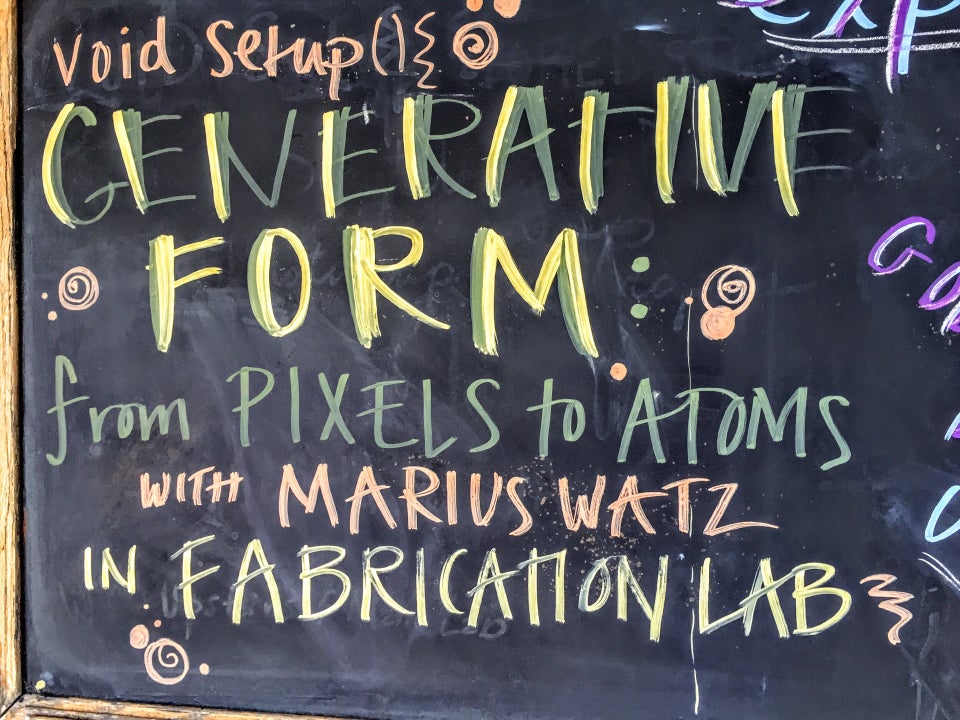 void setup(){
GENERATIVE
FORM:
from PIXELS to ATOMS
WITH MARIUS WATZ
IN FABRICATION LAB }